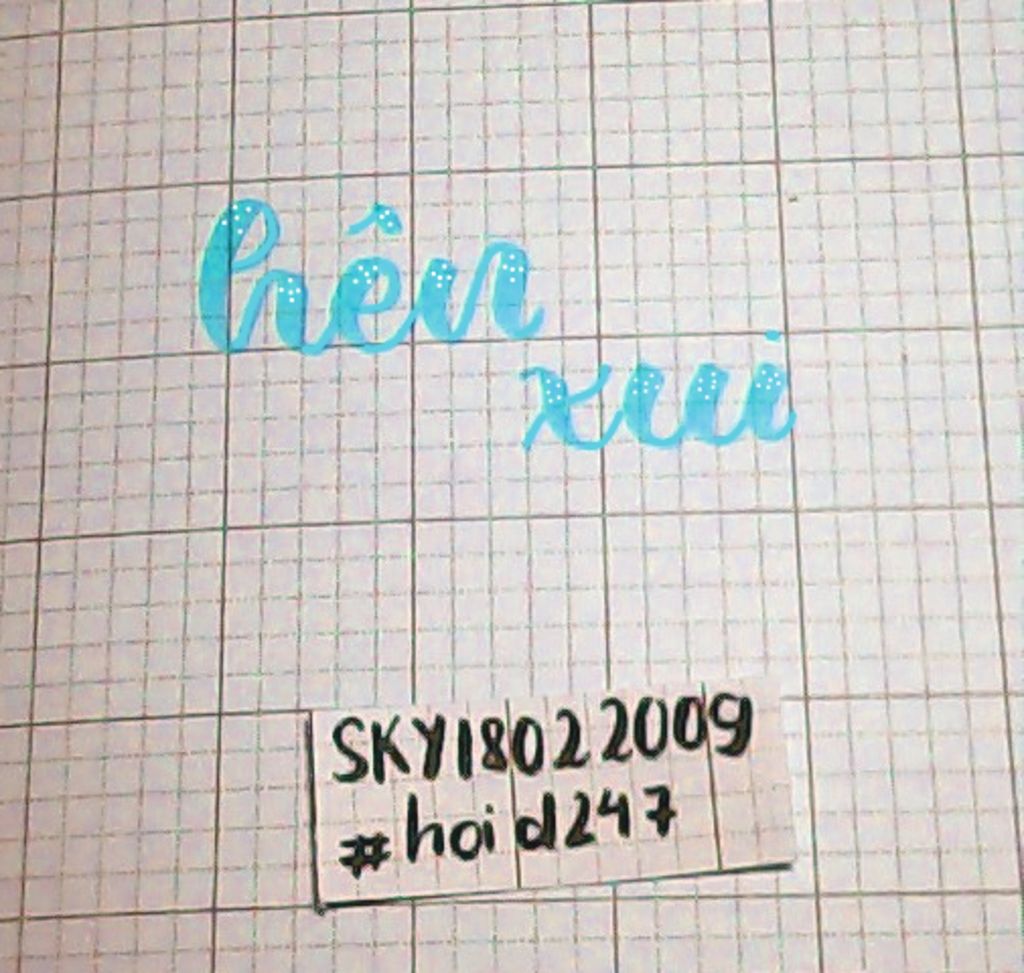 hên
xui
SKY18022009
#hoid247